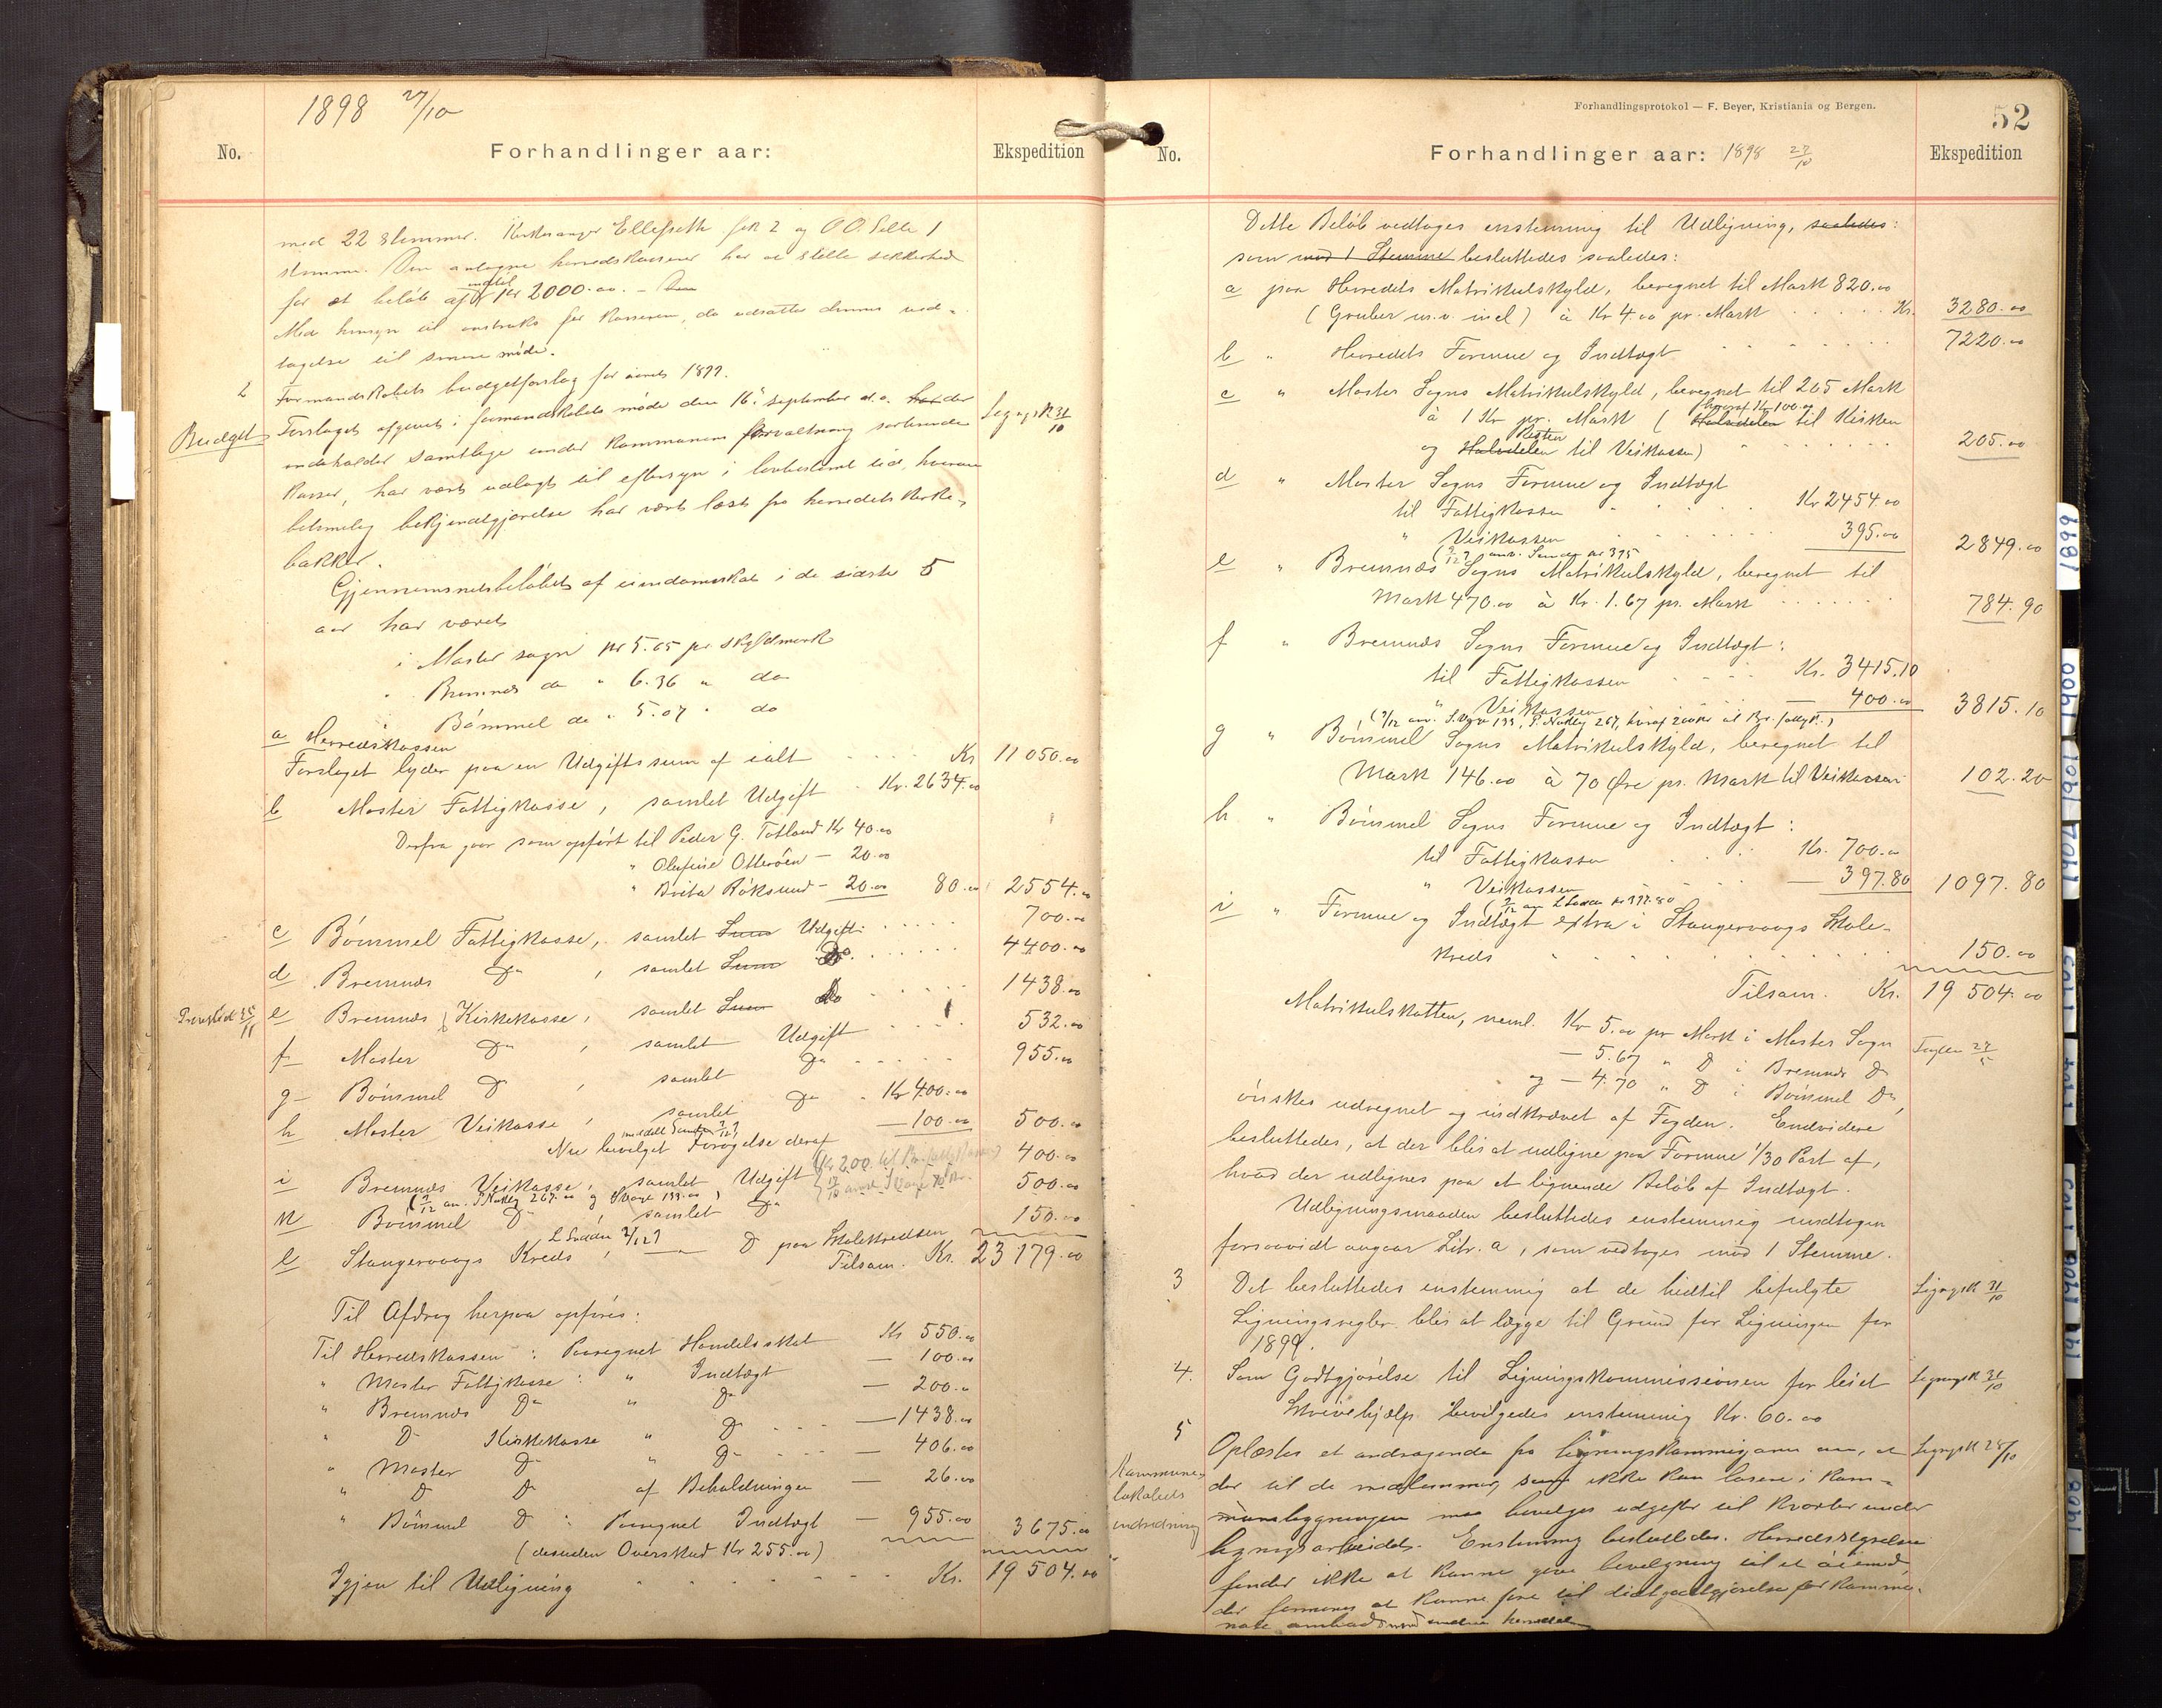 1898 27/10
No.
Forhandlinger aar:
Ekspedition
med 22 stemmer. Kirkesanger Ellefseth fik 2 og O O Lille 1
stemme. Den antagne herredskasserer har at stille sikkerhed
for et beløb af indtil kr 2000.00. – Den
Med hensyn til instruks for kassereren, da udsattes dennes ved-
tagelse til senere møde.
2 Formandskabets budgetforslag for aaret 1899.
Budget Forslaget afgivet i formandskabets møde den 16. september d.a. har der
Lignngsk 31/10
indeholder samtlige under kommunens forvaltning sorterende
kasser, har været udlagt til eftersyn i lovbestemt tid, hvorom
behørig bekjendtgjørelse har været læst fra herredets kirke-
bakker.
Gjennemsnitsbeløbet af eiendomsskat i de sidste 5
aar har været
i Moster sogn kr 5.05 pr skyldmark
" Bremnes do " 6.36 " do
" Bømmel do " 5.07 " do
a Herredskassen
Forslaget lyder paa en Udgiftssum af ialt Kr 11 050.00
b Moster Fattigkasse, samlet Udgift Kr. 2634.00
Derfra gaar som opført til Peder G. Totland Kr 40.00
" Olufine Otterøen – 20.00
" Brita Røksund – 20.00 80.00 2554.00
c Bømmel Fattigkasse, samlet Sum Udgift 700.00
d Bremnes Do, samlet Sum Do 4400.00
e Bremnes Kirkekasse, samlet Sum Do 1438.00
f Moster Do, samlet Udgift 532.00
g Bømmel Do, samlet Do 955.00
h Moster Veikasse, samlet Do Kr 400.00
Nu bevilget Forøgelse deraf – 100.00 500.00
i Bremnes Veikasse, samlet Udgift 400.00
k Bømmel Do, samlet Do 500.00
l Stangervaags Kreds, — Do paa Skolekredsen 150.00
Tilsam. Kr. 23 179.00
Til Afdrag herpaa opføres:
Til Herredskassen: Paaregnet Handelsskat Kr 550.00
" Moster Fattigkasse: " Indtægt – 100.00
" Bremnes Do " Do – 200.00
" Do Kirkekasse " Do – 1438.00
" Moster Do " Do – 406.00
" Do Do af Beholdningen – 26.00
" Bømmel Do : Paaregnet Indtægt – 955.00 3675.00
(desuden Overskud Kr 255.00)
Igjen til Udligning Kr. 19 504.00
Forhandlingsprotokol — F. Beyer, Kristiania og Bergen.
52
No.
Forhandlinger aar: 1898 27/10
Ekspedition
Dette Beløb vedtoges enstemmig til Udligning, saaledes:
som med 1 Stemme besluttedes saaledes:
a paa Herredets Matrikulskyld, beregnet til Mark 820.00
(Gruber m.v. incl) à Kr 4.00 pr. Mark Kr. 3280.00
b " Herredets Formue og Indtægt 7220.00
c " Moster Sogns Matrikulskyld, beregnet til 205 Mark
à 1 Kr pr. Mark (Halvdelen hvoraf Kr 100.00 til Kirken
og Halvdelen Resten til Veikassen) 205.00
d " Moster Sogns Formue og Indtægt
til Fattigkassen Kr 2454.00
" Veikassen 395.00 2849.00
e " Bremnes Sogns Matrikulskyld, beregnet til
Mark 470.00 à Kr. 1.67 pr. Mark 784.90
f " Bremnes Sogns Formue og Indtægt:
til Fattigkassen Kr. 3415.10
" Veikassen – 400.00 3815.10
g " Bømmel Sogns Matrikulskyld, beregnet til
Mark 146.00 à 70 Øre pr. Mark til Veikassen 102.20
h " Bømmel Sogns Formue og Indtægt:
til Fattigkassen Kr. 700.00
" Veikassen – 397.80 1097.80
i " Formue og Indtægt extra i Stangervaags Skole-
kreds 150.00
Tilsam. Kr. 19 504.00
Matrikulskatten, neml. Kr 5.00 pr Mark i Moster Sogn
— 5.67 " Do i Bremnes Do
og — 4.70 " Do i Bømmel Do,
ønskes udregnet og indkrævet af Fogden. Endvidere
besluttedes, at der blir at udligne paa Formue 1/30 Part af,
hvad der udlignes paa et lignende Beløb af Indtægt.
Udligningsmaaden besluttedes enstemmig undtagen
forsaavidt angaar Litr. a, som vedtoges mod 1 Stemme.
3 Det besluttedes enstemmig at de hidtil befulgte
Lignngsk 31/10
Ligningsregler blir at lægge til Grund for Ligningen for
1899.
4. Som Godtgjørelse til Ligningskommissionen for leiet
Lignngsk 31/10
Skrivehjælp bevilgedes enstemmig Kr. 60.00
5 Oplæstes et andragende fra ligningskommisjonen om, at
Lignngsk 28/10
Kommune-
lokalets
indredning
der til de medlemmer, som ikke kan losere i kom-
munebygningen maa bevilges udgifter til kvarter under
ligningsarbeidet. Enstemmig besluttedes. Herredsstyrelsen
finder ikke at kunne give bevilgning til et øiemed,
der formenes at kunne føre til diætgodtgjørelse for kommu-
nale ombudsmænd inden herredet
1899
1900
1901
1902
1908